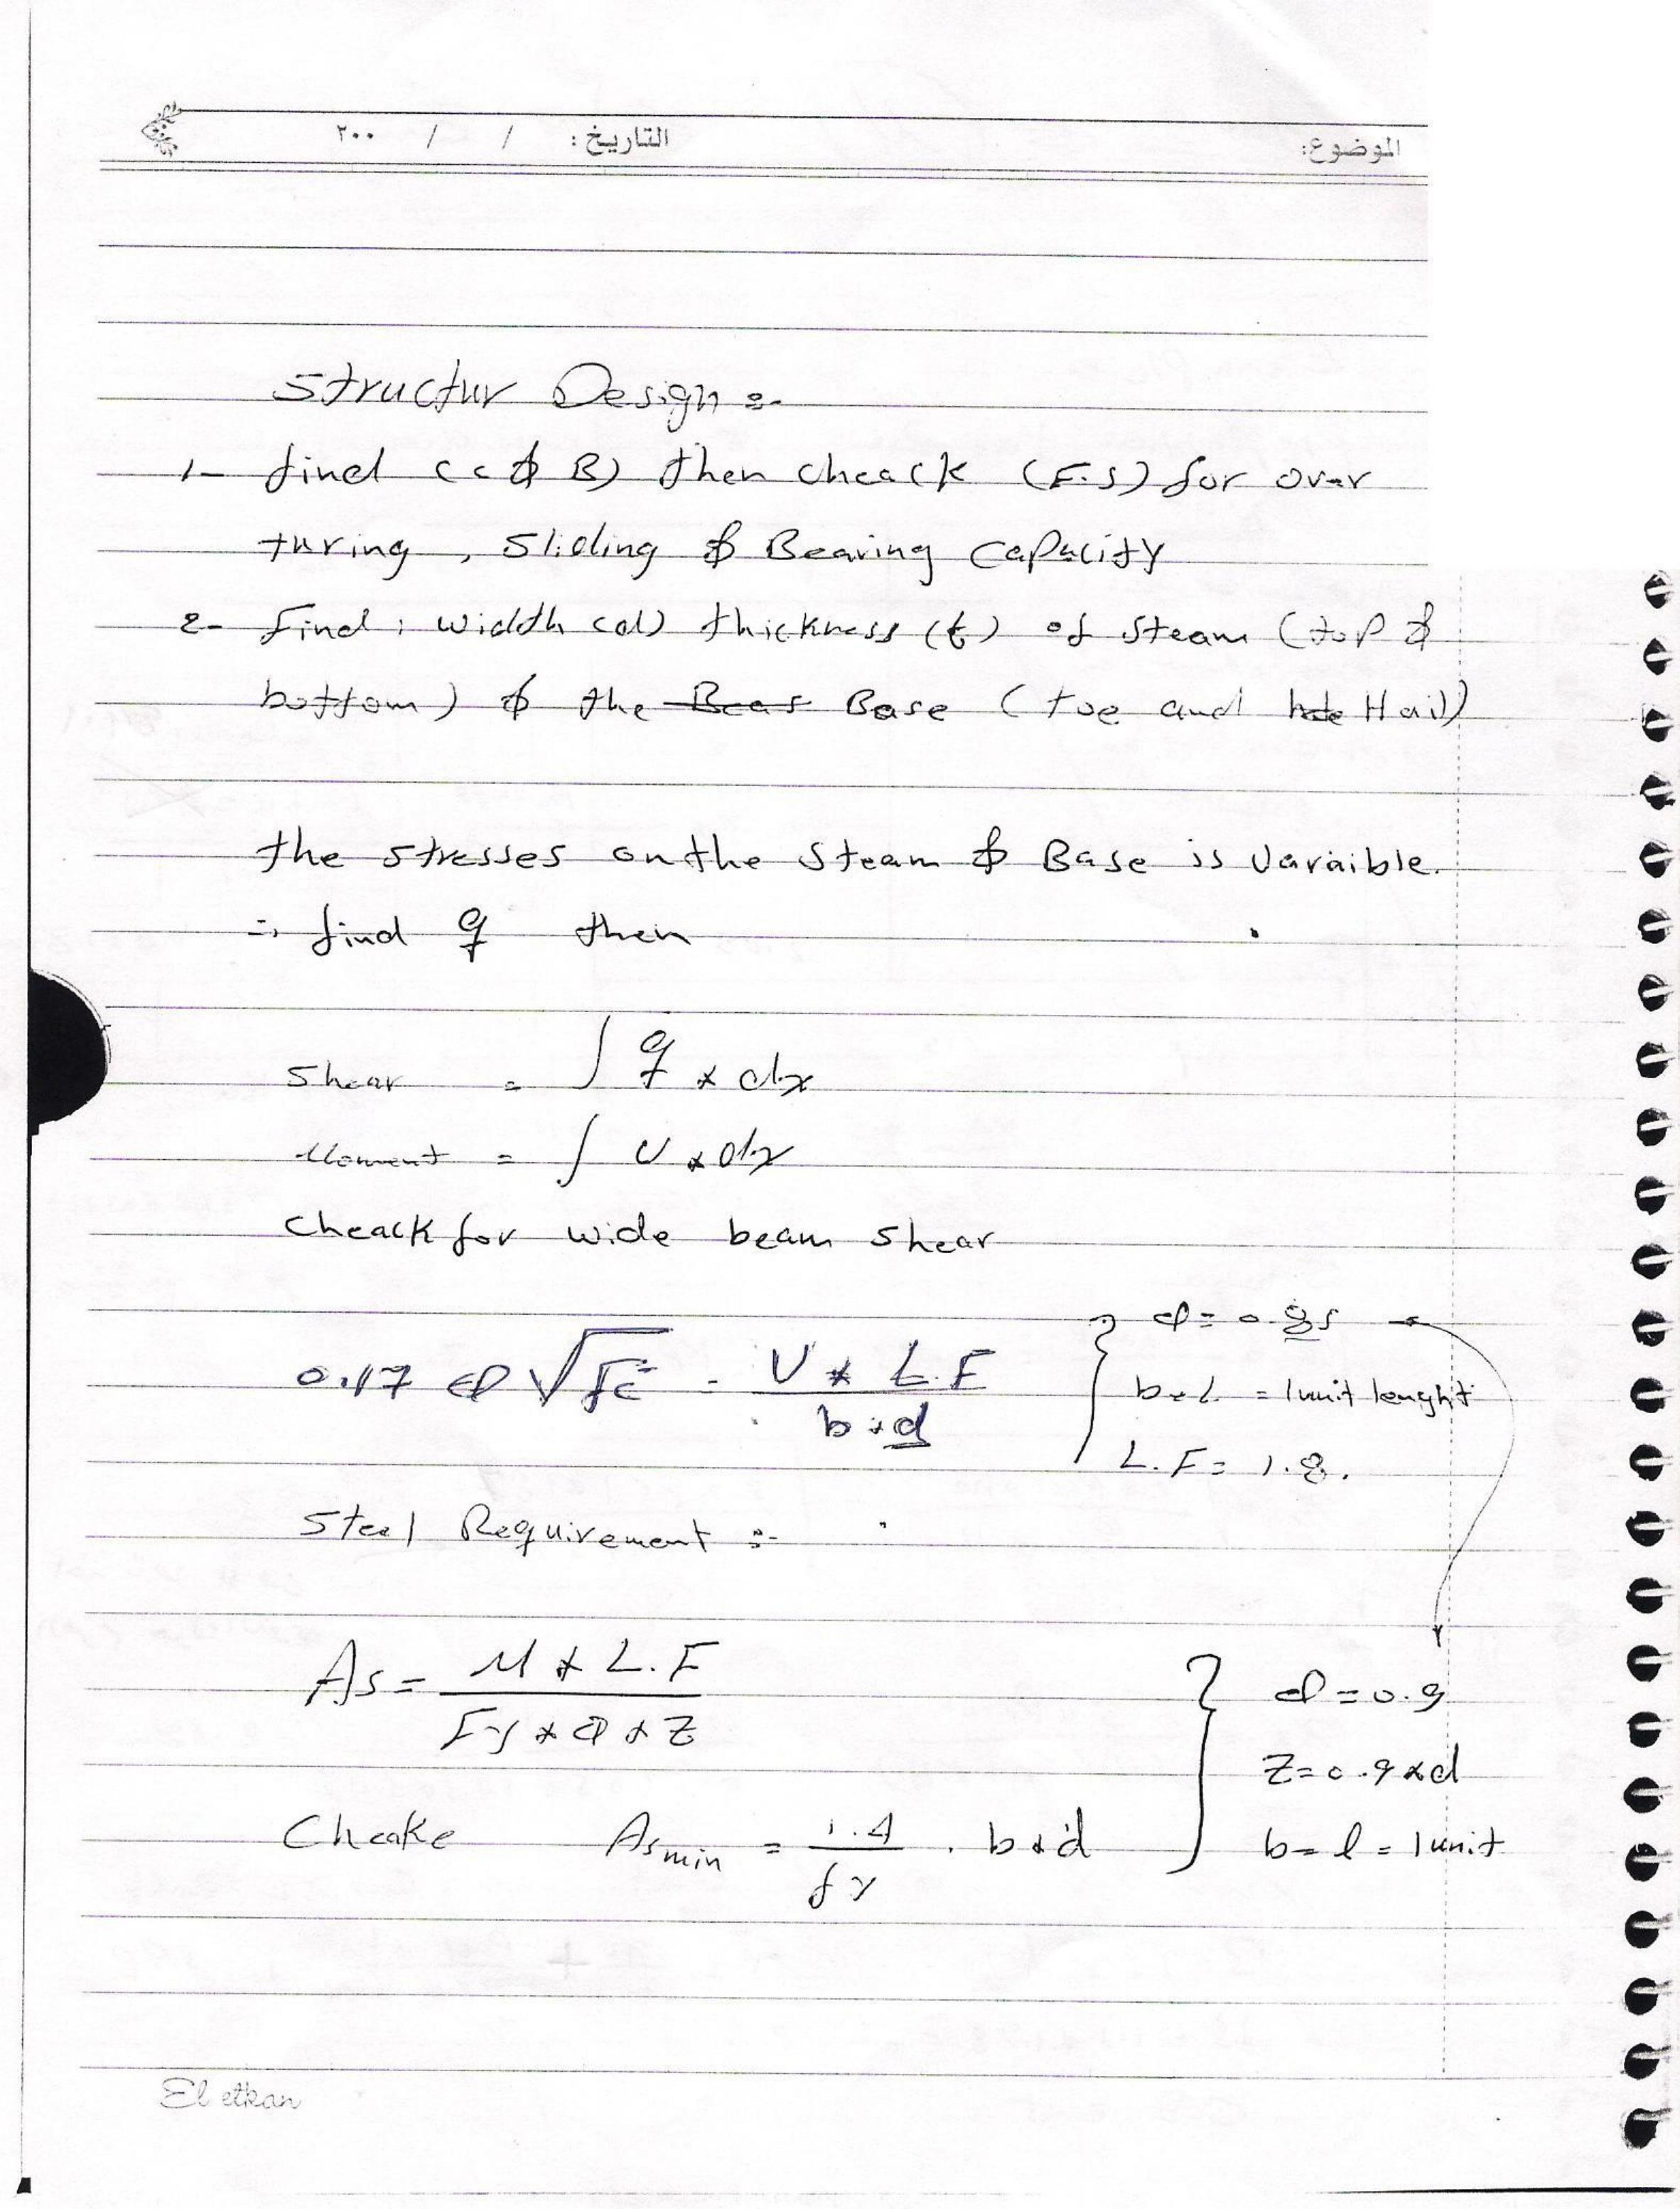 الموضوع: التاريخ: / / ٢٠٠
Structur Design :-
1- find (c & B) then cheack (F.S) for over
turing, Sliding & Bearing capacity
2- Find: width (d) thickness (t) of steam (top &
bottom) & the Base (toe and Hail)
the stresses on the Steam & Base is varaible.
∴ find q then
Shear = ∫ q * dx
Moment = ∫ V * dx
cheack for wide beam shear
0.17 Φ √fc' = V * L.F / b*d } Φ = 0.85
b*L = 1 unit lenght
L.F = 1.8.
Steel Requirement :-
As = M * L.F / Fy * Φ * Z } Φ = 0.9
Z = 0.9*d
Cheake As min = 1.4 / fy . b*d b = l = 1 unit
El etkan